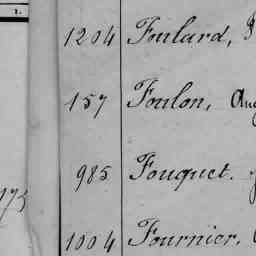 1.
1204 Foulard,
157 Foulon, Aug
985 Fouquet.
173
1004 Fournier,